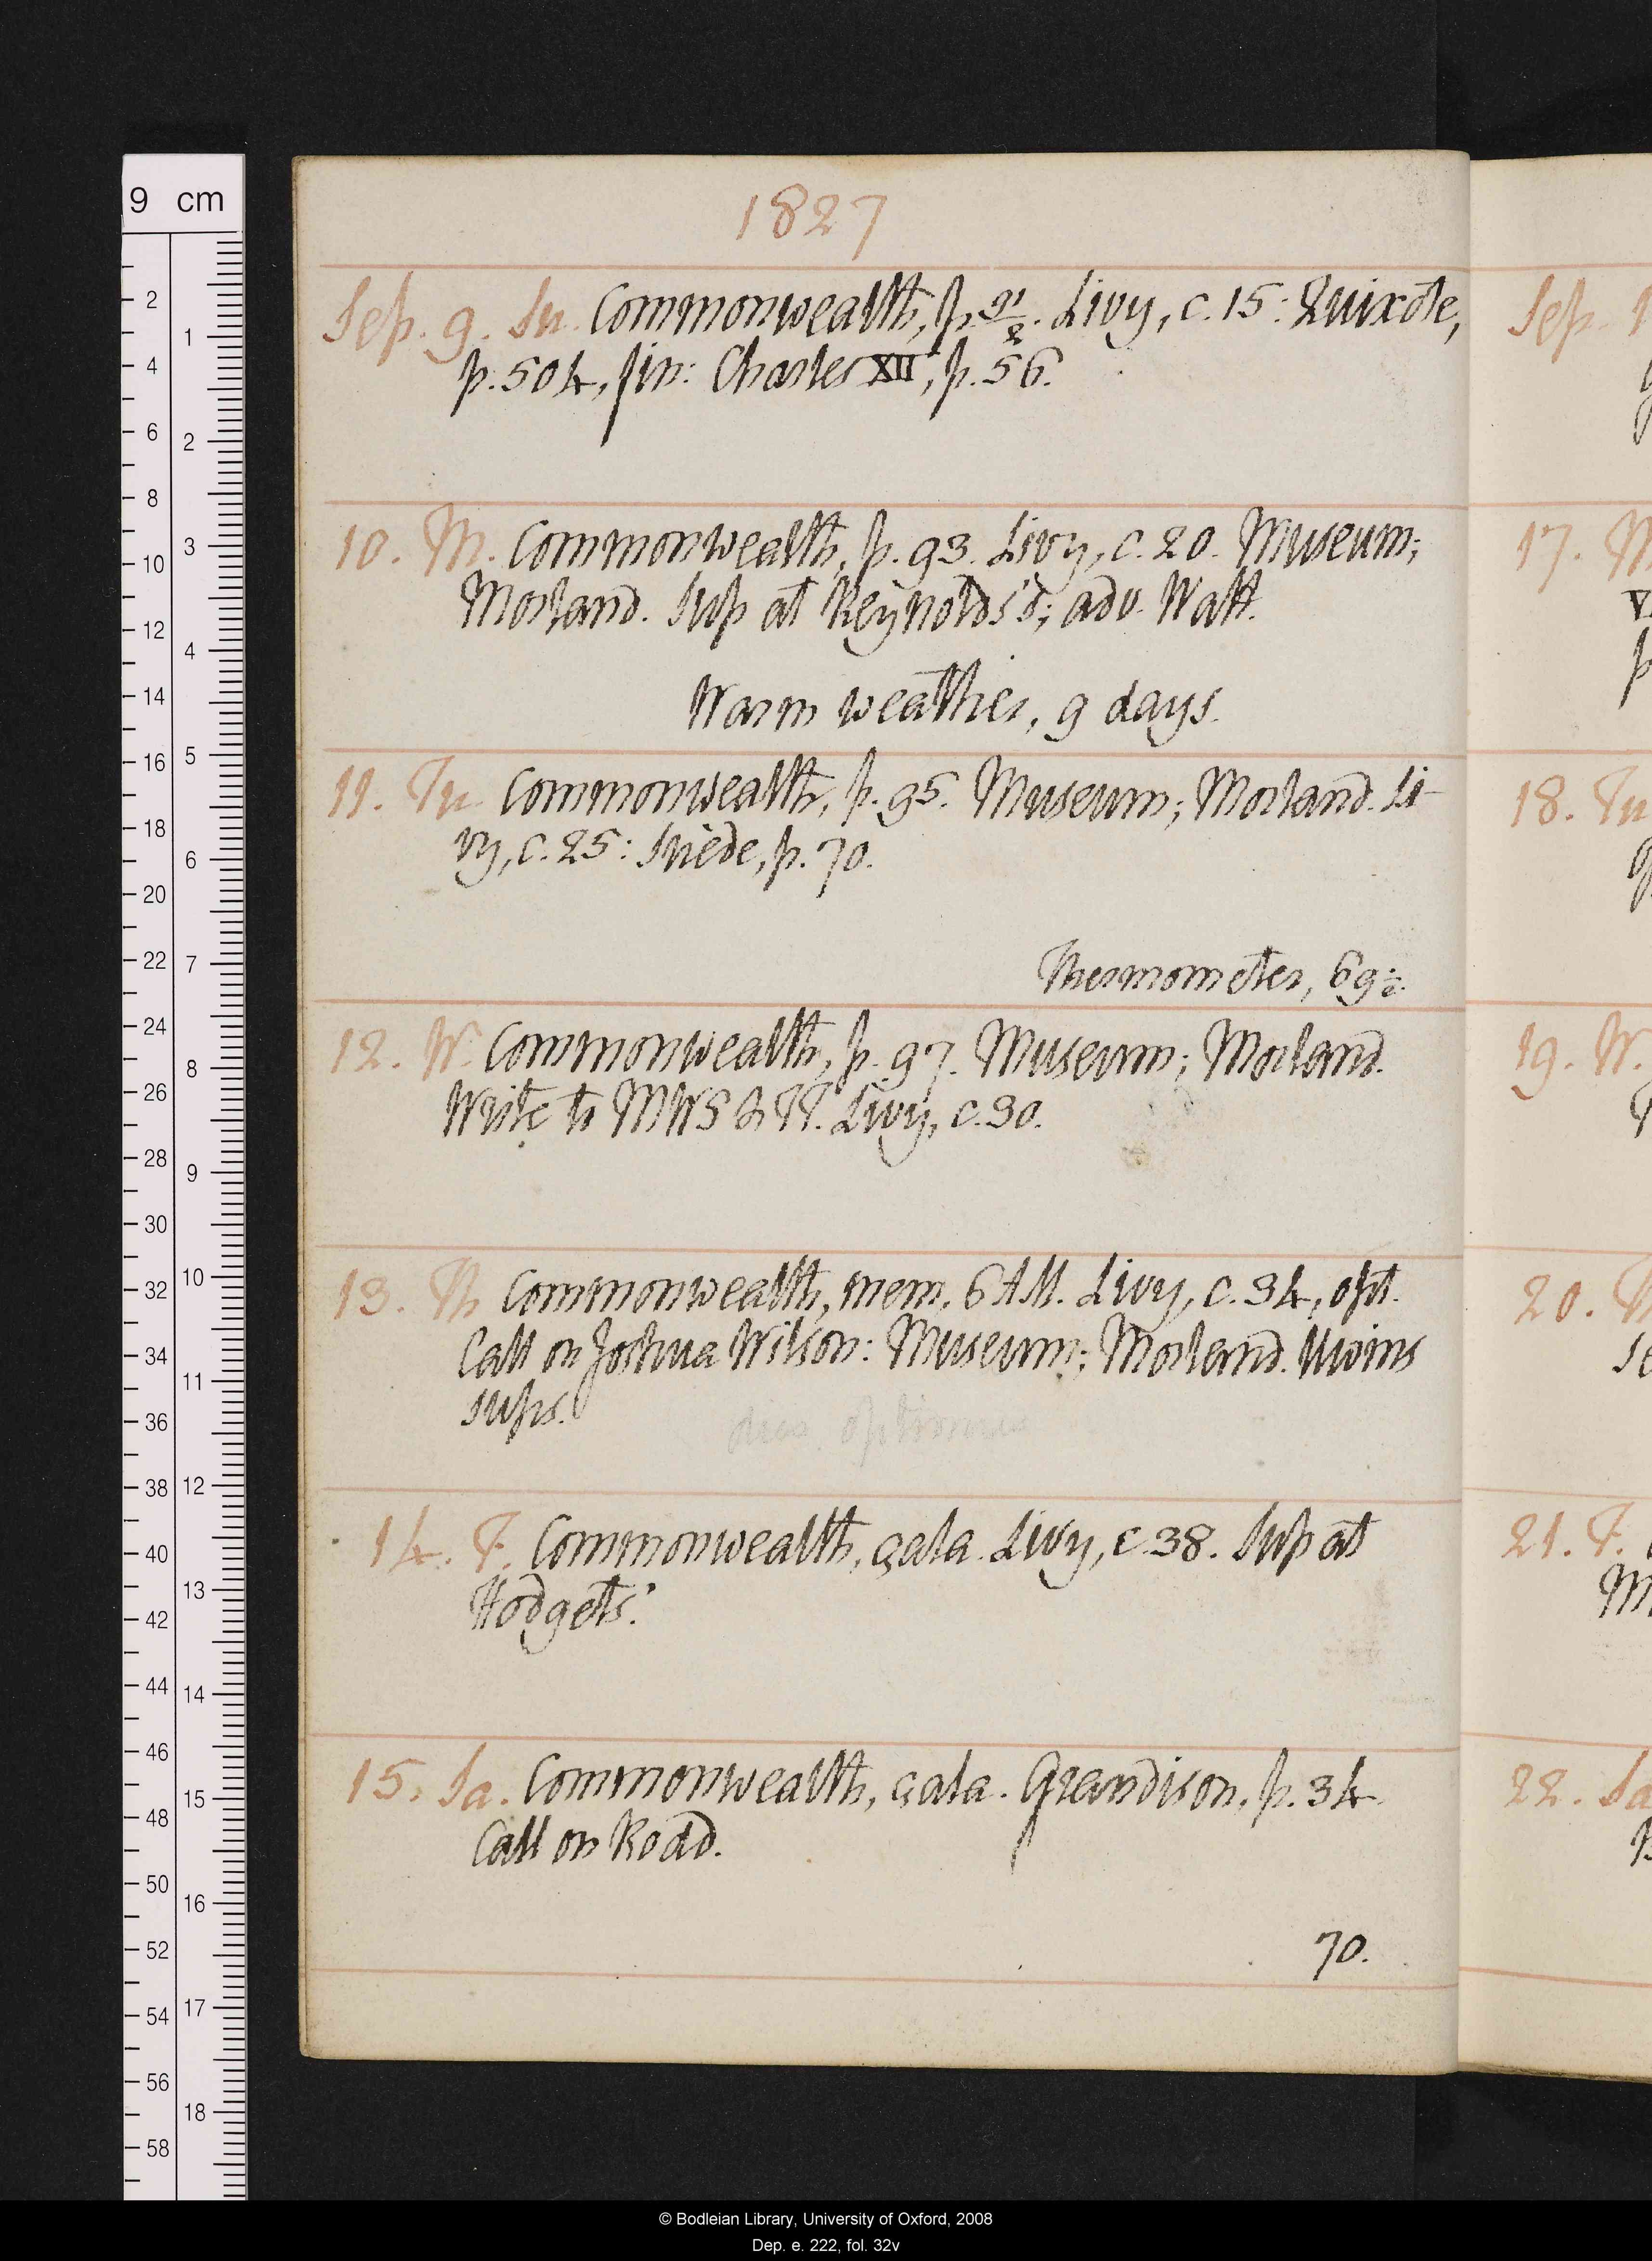 1827
Sep. 9. Su. Commonwealth, p. 91/2. Livy, c. 15: Quixote,
p. 504, fin: Charles XII, p. 56.
10. M. Commonwealth, p. 93. Livy, c. 20. Museum;
Morland. Sup at Reynolds's; adv. Watt.
Warm weather, 9 days.
11. Tu. Commonwealth, p. 95. Museum; Morland. Li-
vy, c. 25: Suède, p. 70.
Thermometer, 69½.
12. W. Commonwealth, p. 97. Museum; Morland.
Write to MWS & TT. Livy, c. 30.
13. Th Commonwealth, mem, 6 AM. Livy, c. 34, opt.
Call on Joshua Wilson: Museum; Morland. Uwins
sups.
dies optimus
14. F. Commonwealth, çala. Livy, c. 38. Sup at
Hodgets'.
15. Sa. Commonwealth, çala. Grandison, p. 34
Call on Rodd.
70.
Sep.
17. M
18. Tu
19. W.
20.
21. F.
M
22. Sa
9 cm
2
4
6
8
10
12
14
16
18
20
22
24
26
28
30
32
34
36
38
40
42
44
46
48
50
52
54
56
58
1
2
3
4
5
6
7
8
9
10
11
12
13
14
15
16
17
18
© Bodleian Library, University of Oxford, 2008
Dep. e. 222, fol. 32v